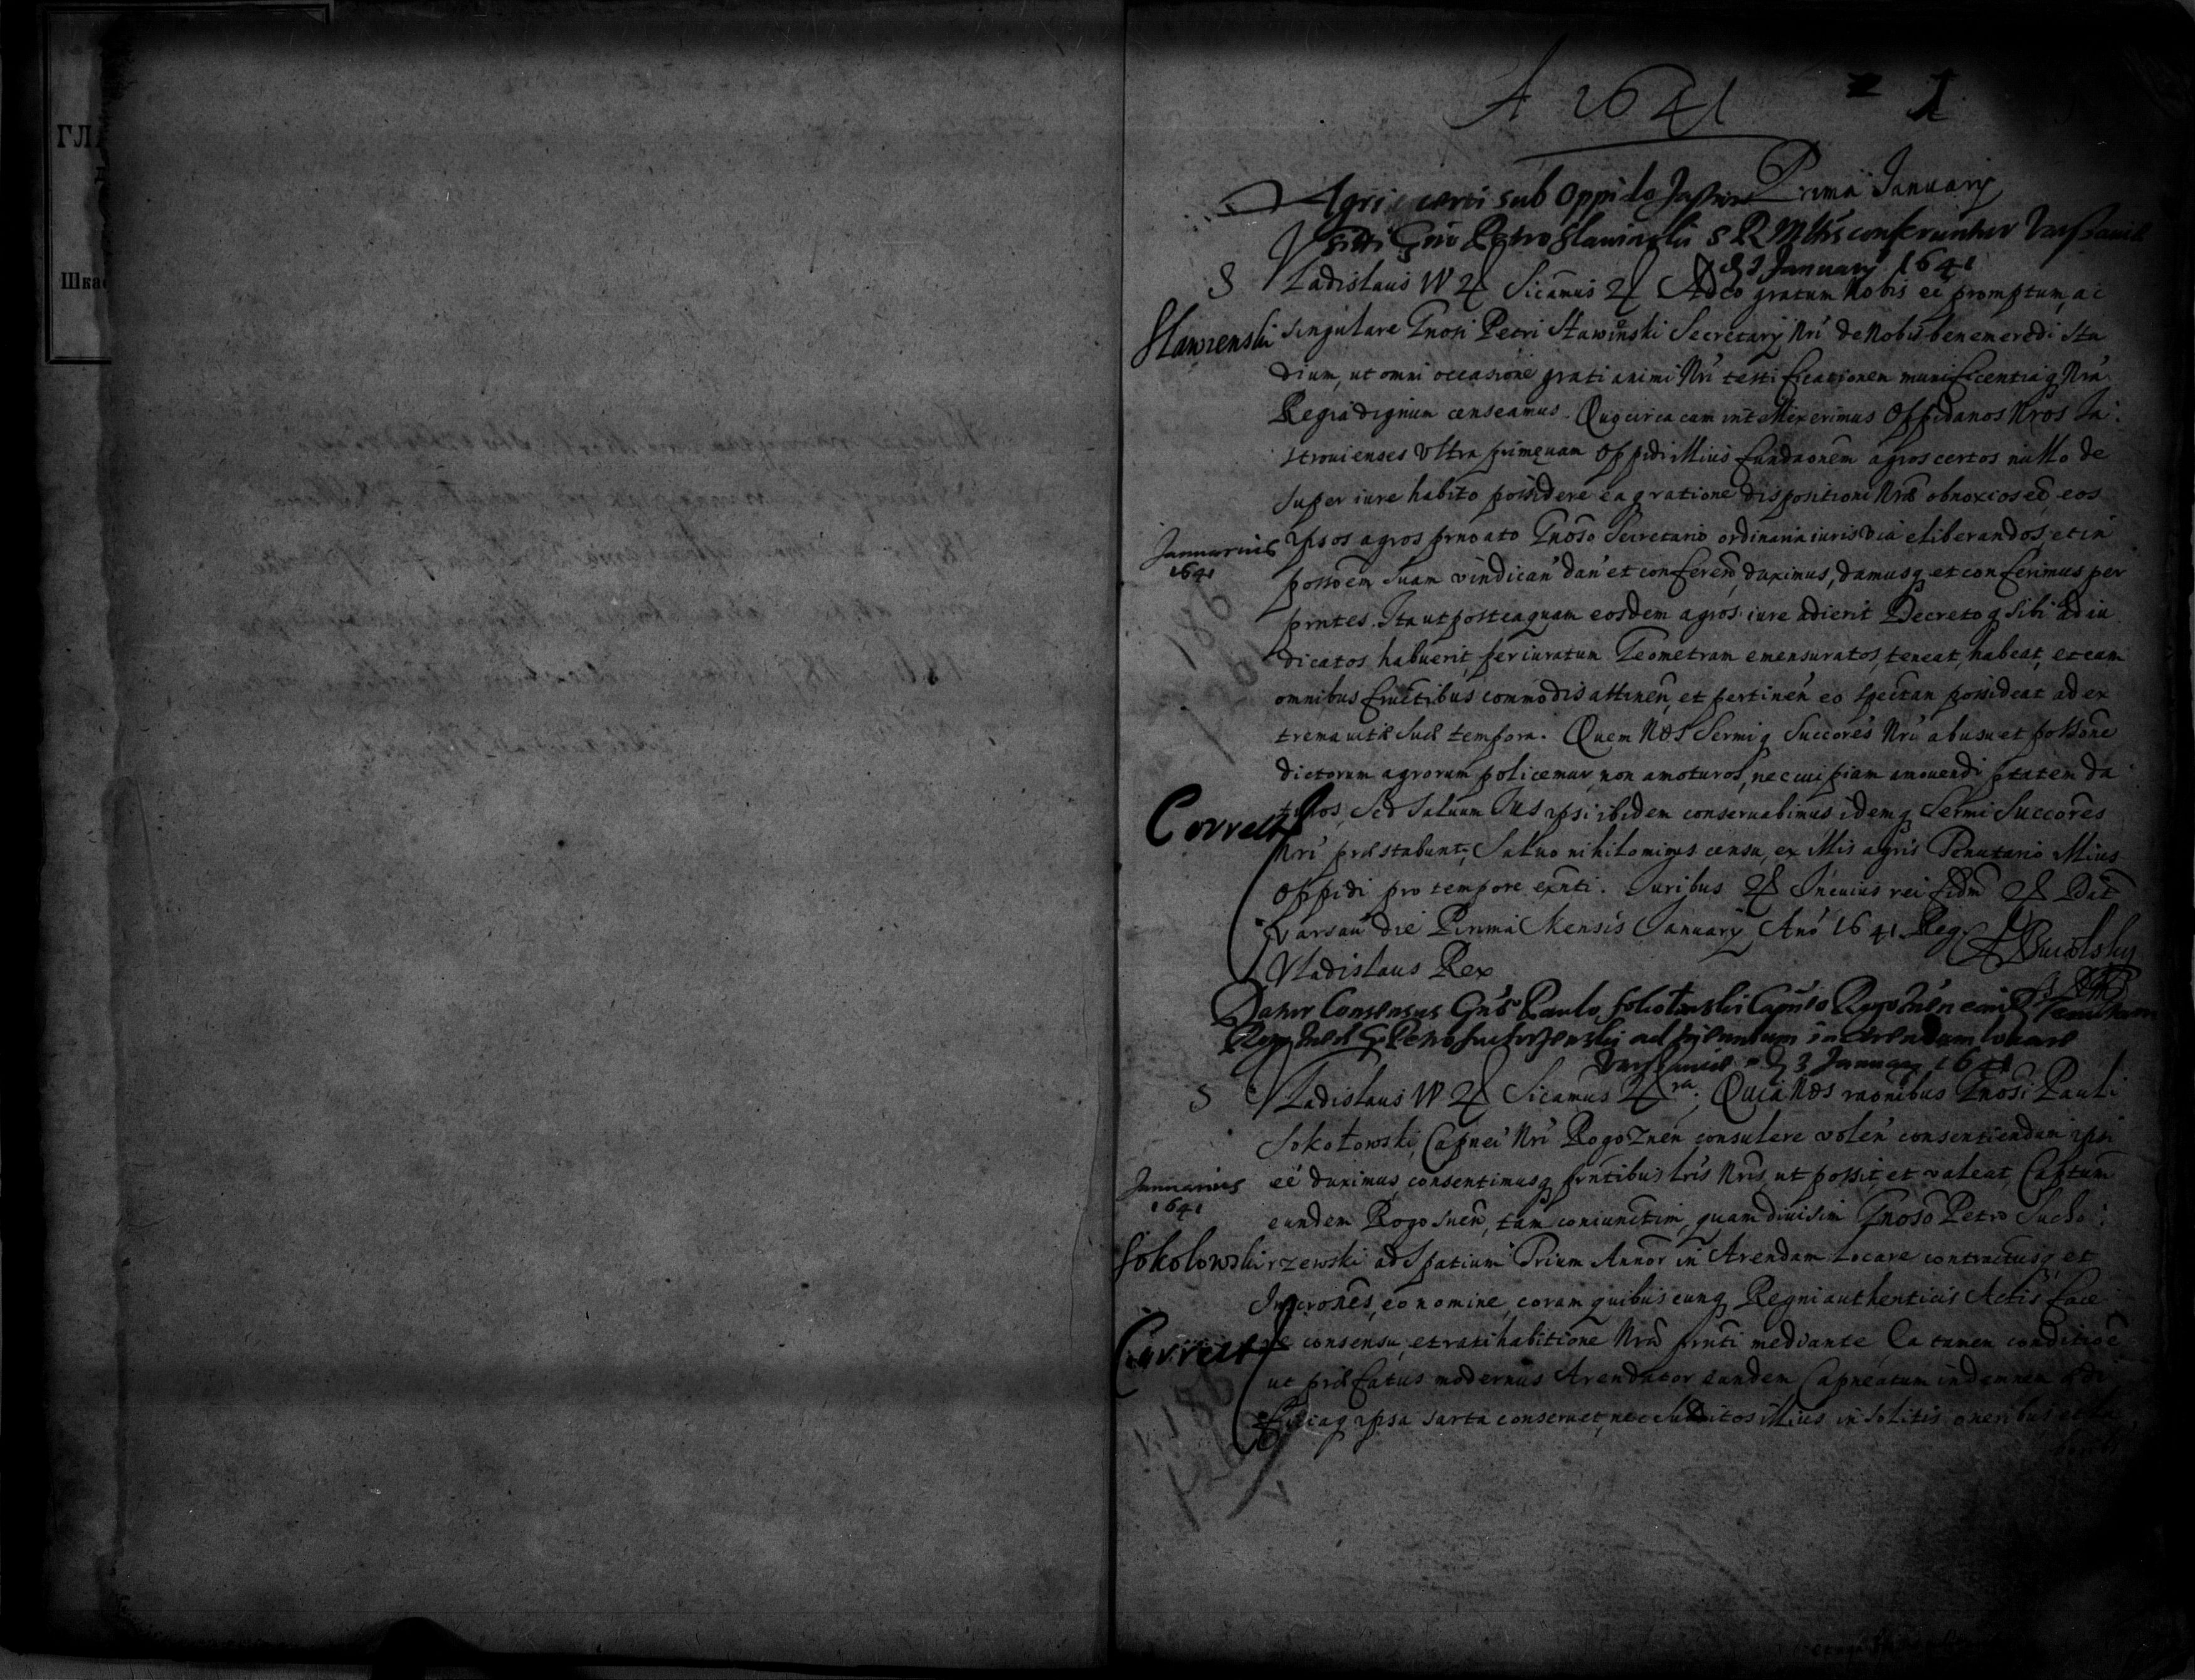 ГЛ
Шка
A 1641
1
Prima January
Agri certi sub Oppido
siti Gnō Petro Slawinski S R Mttis conferuntur Varsaviæ
d 1 January 1641
S Vladislaus IV Sicamus Adeo gratum Nobis eē promptum, ac
Slawienski
singulare Gnosi Petri Stawinski Secretarÿ Nri de Nobis benemerēdi stu
dium, ut omni occasione grati animi Nri testificationem munificentiaq Nra
Regia dignum censeamus. Quocirca cum intellexerimus Oppidanos Nros Ja
strouienses Vltra primæuam Oppidi illius fundaōnem agros certos nullo de
super iure habito possidere eaq ratione dispositioni Nræ obnoxios eē, eos
Januarius
1641
ipsos agros prnoato Gnoso Secretario ordinaria iuris via eliberandos, et in
possōem suam vindican dan et conferen duximus, damusq et conferimus per
prntes. Ita ut posteaquam eosdem agros iure adierit Decretoq sibi adiu
dicatos habuerit, per iuratum Geometram emensuratos teneat, habeat, et cum
omnibus fructibus commodis attinen, et pertinen eo spectan possideat ad ex
trema vitæ suæ tempora. Quem Nos Sermiq Succores Nri ab usu et possōne
dictorum agrorum policemur non amoturos, nec cuipiam amouendi ptatem da
Correct
turos, Sed saluum Ius ipsi ibidem conseruabimus idemq Sermi Succores
Nri præstabunt, Saluo nihilominus censu, ex illis agris Tenutario illius
Oppidi pro tempore exnti. Iuribus In cuius rei fidm Dat
Varsau die Prima Mensis January Anō 1641 Reg.
Vladislaus Rex
Datur Consensus Gnō Paulo Sokolowski Capneo Rogoznen
G Petro Suchorzewski ad triennium in arendam locare
Varsaviæ d 3 January 1641
S Vladislaus IV Sicamus Quia Nos raonibus Gnosi Pauli
Sokołowski, Capnei Nri Rogoznen consulere volen consentiendum ipsi
Januarius
1641
eē duximus, consentimusq prntibus lris Nris, ut possit, et valeat Captum
eundem Rogosnen, tam coniunctim, quam diuisim Gnoso Petro Sucho
Sokolowski
rzewski ad spatium Trium Annor in Arendam Locare contractusq et
Inscrones, eo nomine, coram quibuscunq Regni authenticis Actis face
Correct
re consensu, et ratihabitione Nra prnti mediante, Ea tamen conditioē
ut præfatus modernus Arendator eundem Capneatum indemnem ædi
ficiaq ipsa sarta conseruet, nec subditos illius insolitis oneribus